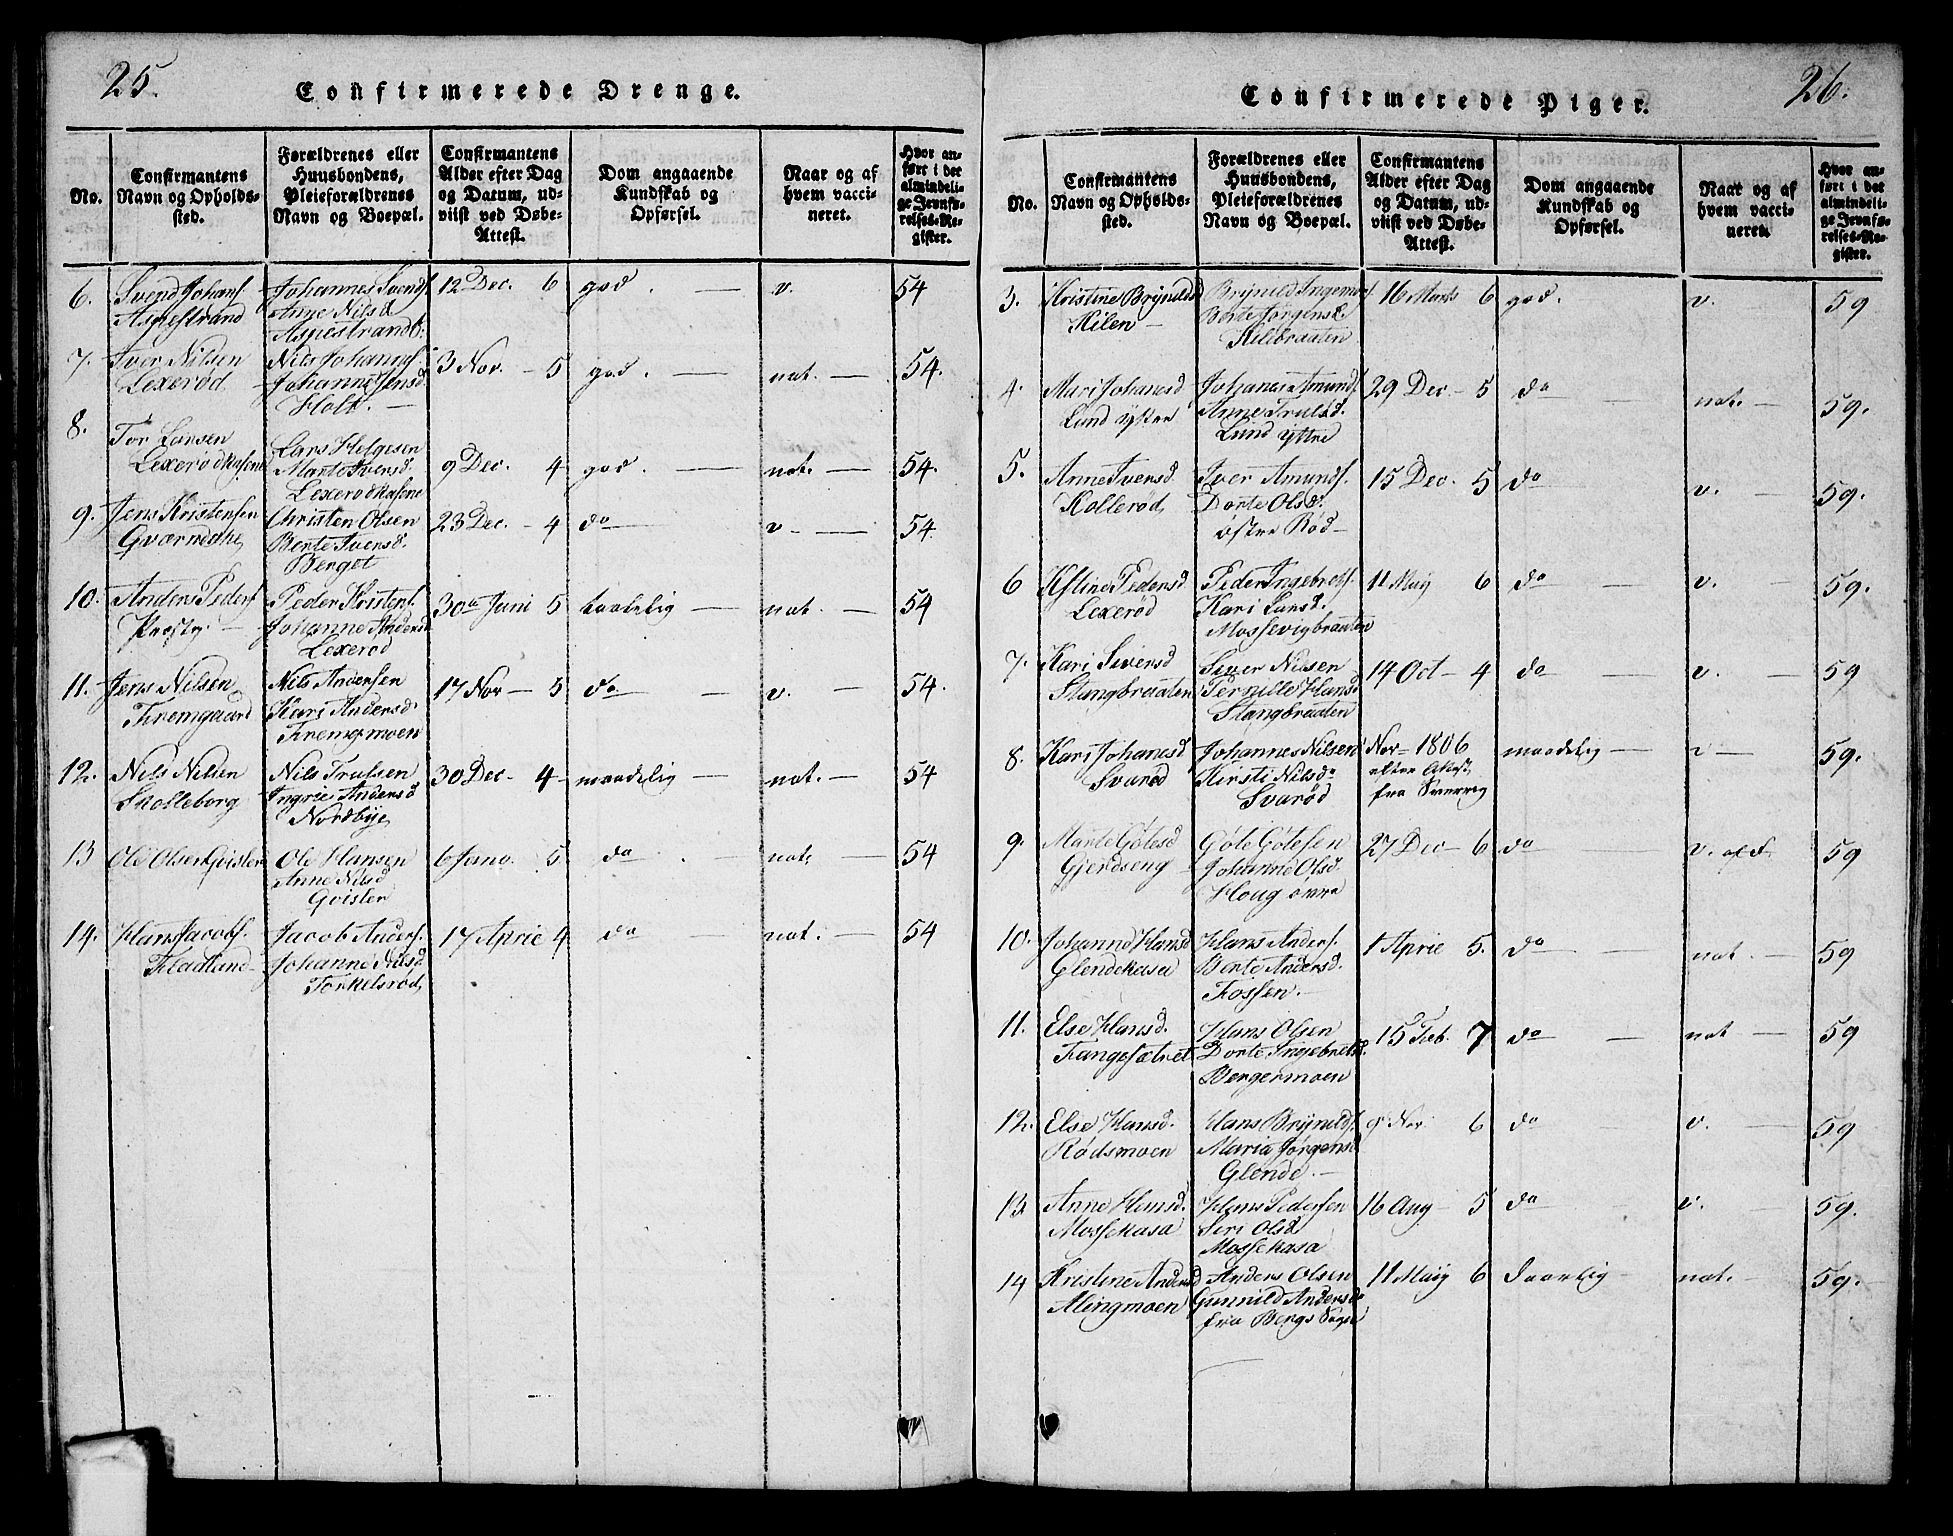 25.
Confirmerede Drenge.
No.
Confirmantens Navn og Opholdssted.
Forældrenes eller Huusbondens, Pleieforældrenes Navn og Boepæl.
Confirmantens Alder efter Dag og Datum, udviist ved Døbe-Attest.
Dom angaaende Kundskab og Opførsel.
Naar og af hvem vaccineret.
Hvor anført i det almindelige Jevnførelses-Register.
6. Svend Johans. Johannes Svends. 12 Dec. 6 god. — v. 54
Aspestrand Anne Nilsd
Aspestrand
7. Iver Nilsen Nils Johans. 3 Nov. — 5 god. — nat. — 54.
Lexerød Johanne Jensd
Holt. —
8. Tor Larsen Lars Helgesen 9 Dec. 4 god. — nat. — 54.
Lexerødkasene Marte Iversd.
Lexerødkasene
9. Jens Kristensen Christen Olsen 23 Dec. — 4 do — v — 54.
Berte Iversd.
Berget
10. Anders Peders. Peder Kristens. 30te Juni 5 taalelig — nat. — 54
Johanne Andersd
Lexerød
11. Jens Nilsen Nils Andersen 17 Nov — 5 do — v. — 54.
Fremgaard Kari Andersd.
Fremgmoen
12. Nils Nilsen Nils Trulsen 30 Dec — 4 maadelig — nat. — 54
Skolleborg Ingrie Andersd
Nordbye
13 Ole Olsen Gvisler Ole Hansen 6 Janv. 5 do — nat. — 54
Anne Nilsd
Gvisler
14. Hans Jacobs. Jacob Anders. 17 April 4 do nat. — 54
Fladland Johanne Nilsd
Torkelsrød
26.
Confirmerede Piger.
No.
Confirmantens Navn og Opholdssted.
Forældrenes eller Huusbondens, Pleieforældrenes Navn og Boepæl.
Confirmantens Alder efter Dag og Datum, udviist ved Døbe-Attest.
Dom angaaende Kundskab og Opførsel.
Naar og af hvem vaccineret.
Hvor anført i det almindelige Jevnførelses-Register.
3. Kristine Brynilds Brynild Ingemor 16 Marts 6 god. v. 59
Kilen — Berte Jørgensd.
Kilebraaten
4. Mari Johansd Johanes Amunds. 29 Dec — 5 do nat. — 59.
Lund ytter Anne Trulsd.
Lund ytre
5. Anne Iversd Iver Amunds. 15 Dec. 5 do v. — 59.
Kollerød Dorte Olsd.
østre Rød —
6 Peder Ingebrets. 11 May 6 do v. — 59.
Lexerød Kari Larsd.
Mossevigbraaten
7. Kari Siversd Siver Nilsen 14 Oct — 4 do v. — 59
Stangbraaten Pernille Hansd
Stangbraaten
8. Kari Johansd Johannes Nilsen Nov — 1806 maadelig — v — 59.
Svarød Kirsti Nilsd. efter Attest
Svarød fra Sverrig
9. Marte Gøtesd Gøte Gøtesen 27 Dec — 6 do v. af F. 59
Gjerdseng Johanne Olsd.
Houg
10. Johanne Hansd Hans Anders. 1 April 5. do nat. — 59
Glendekasa Berte Andersd.
Fossen. —
11. Else Hansd. Hans Olsen 15 Feb. 7 do — nat — 59
Fangesætret Dorte Ingebretsd.
Bergermoen
12. Else Hansd. Hans Brynilds. 9 Nov. 6 do v. — 59
Rødsmoen Maria Jørgensd
Glende. —
13 Anne Hansd. Hans Pedersen 16 Aug — 5 do v. — 59.
Mossekasa Siri Olsd
Mossekasa
14 Kristine Andersd Anders Olsen 11 Maij 6 daarlig — nat. — 59.
Alingmoen Gunnild Andersd.
fra Bergs Sogn